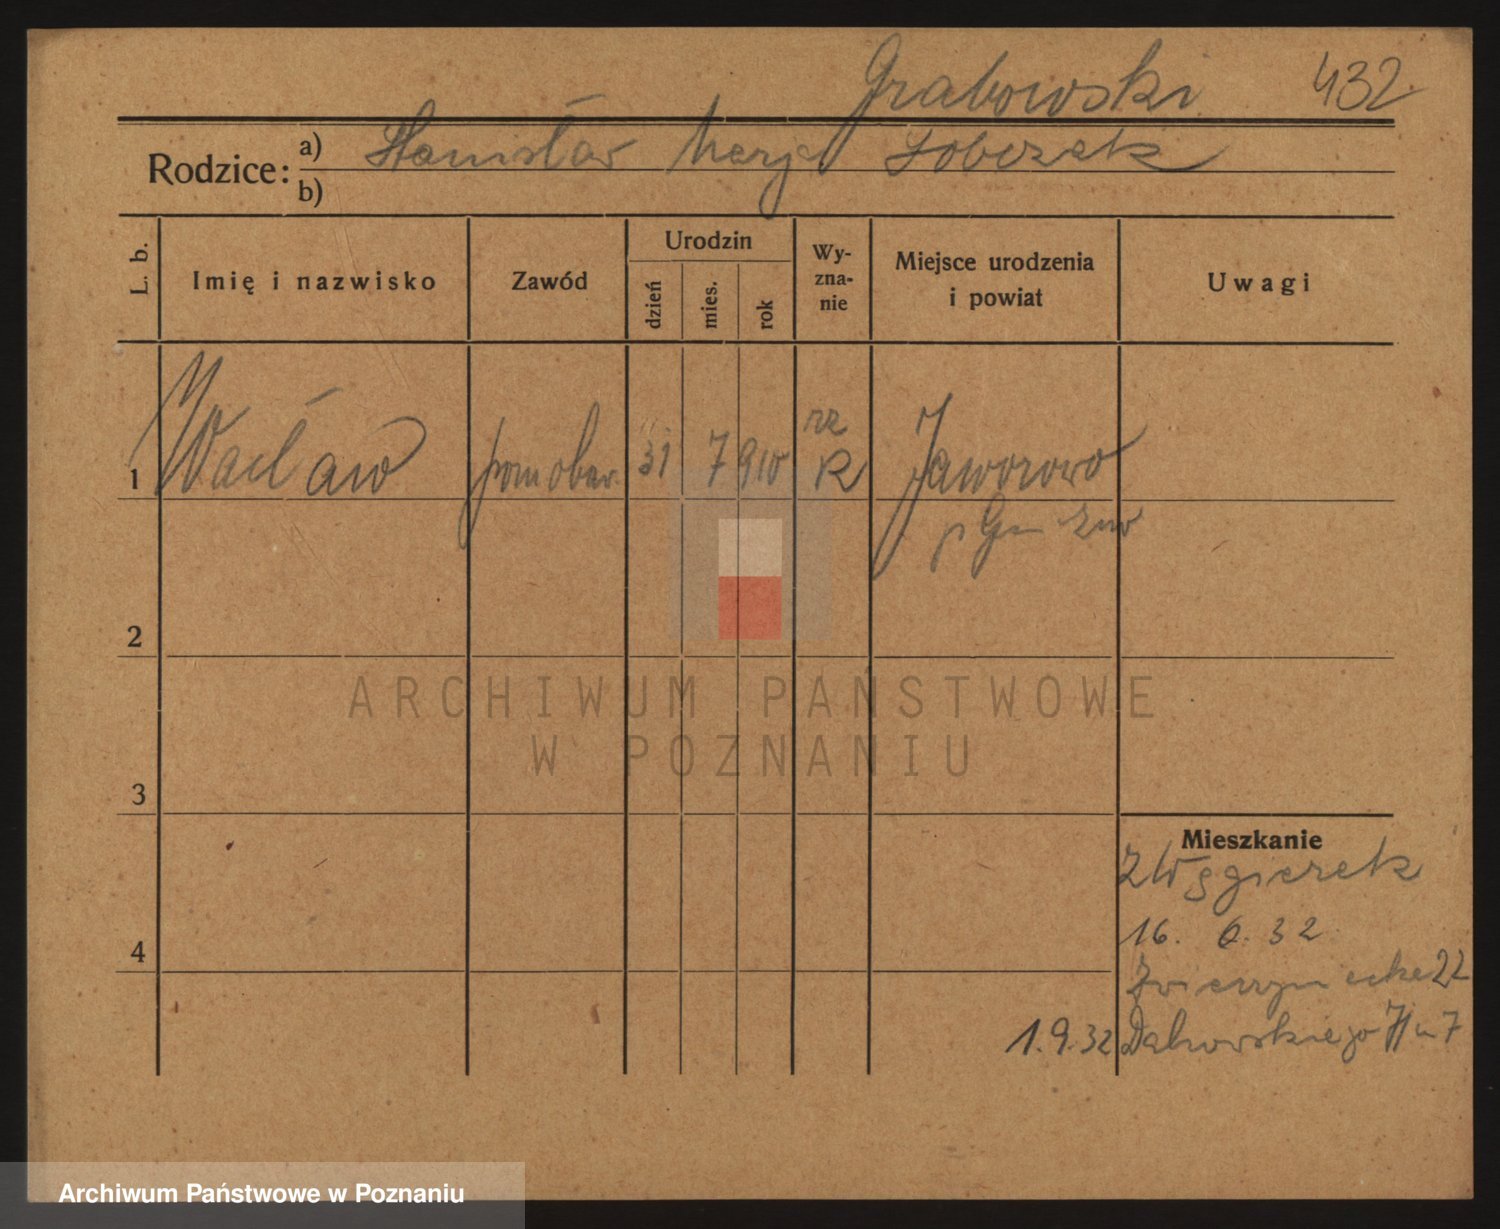 Grabowski 432
Rodzice: a) Stanisław Marja Sobczak
b)
L. b.
Imię i nazwisko
Zawód
Urodzin
dzień
mies.
rok
Wy-
zna-
nie
Miejsce urodzenia
i powiat
Uwagi
1 Wacław 31 7 910 rz K Jaworowo
p
2
ARCHIWUM PAŃSTWOWE
W POZNANIU
3
Mieszkanie
Z Węgierek
16. 6. 32
4
Zwierzyniecka 22
1.9.32 Dąbrowskiego 71 m 7
Archiwum Państwowe w Poznaniu